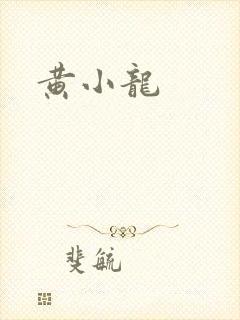 黄小龍
斐毓